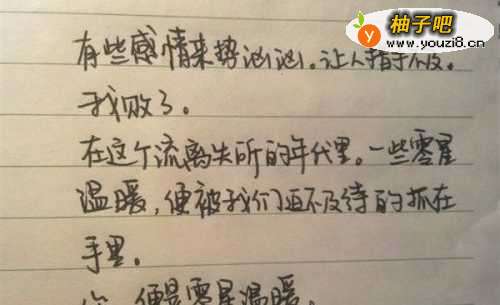 柚子吧
www.youzi8.cn
有些感情来势汹汹。让人措手不及。
我败了。
在这个流离失所的年代里。一些零星
温暖，便被我们迫不及待的抓在
手里。
你，便是零星温暖。